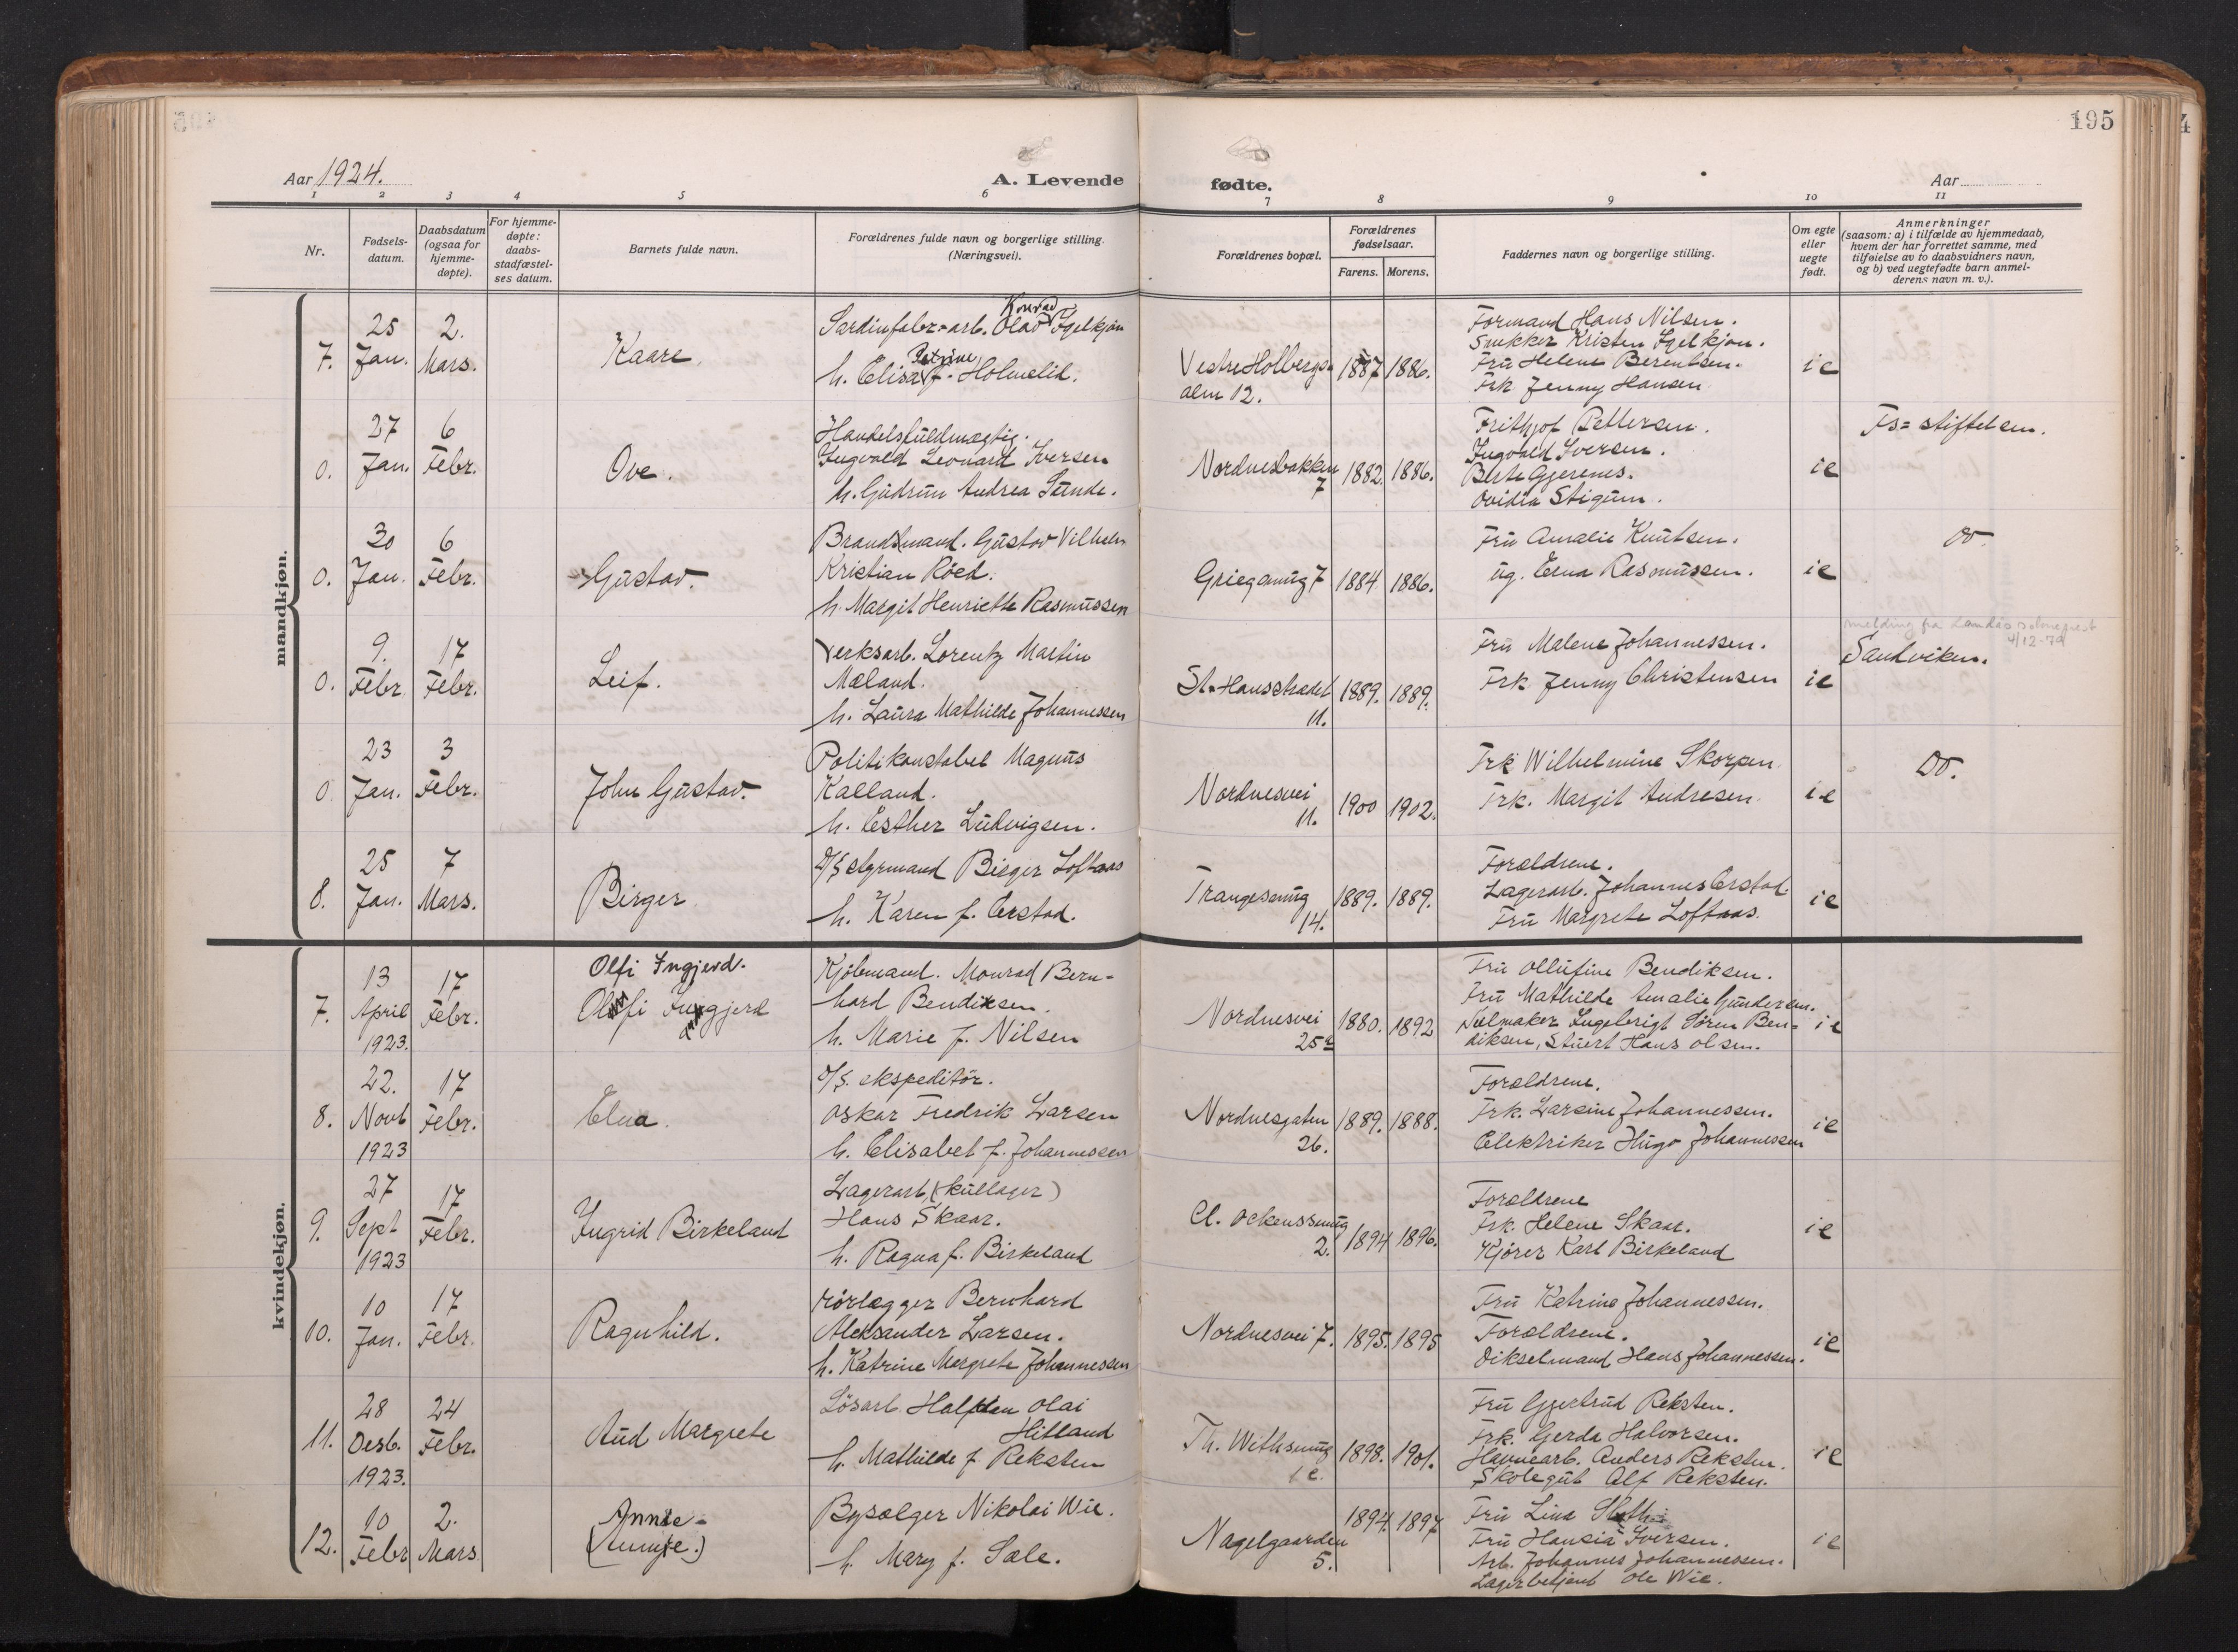 195
Aar 1924.
A. Levende
fødte.
Aar
1 2 3 4 5 6 7 8 9 10 11
Nr.
Fødsels-
datum.
Daabsdatum
(ogsaa for
hjemme-
døpte).
For hjemme-
døpte:
daabs-
stadfæstel-
ses datum.
Barnets fulde navn.
Forældrenes fulde navn og borgerlige stilling.
(Næringsvei).
Forældrenes bopæl.
Forældrenes
fødselsaar.
Farens. Morens.
Faddernes navn og borgerlige stilling.
Om egte
eller
uegte
født.
Anmerkninger
(saasom: a) i tilfælde av hjemmedaab,
hvem der har forrettet samme, med
tilføielse av to daabsvidners navn,
og b) ved uegtefødte barn anmel-
derens navn m. v.).
mandkjøn.
7.
25
Jan.
2.
Mars.
Kaare.
Konrad
Sardinfabr-arb. Olav Igelkjøn
Petrine
h. Elisa f. Holmelid.
Vestre Holbergs-
alm 12.
1887 1886.
Formand Hans Nilsen.
Snekker Kristen Igelkjøn.
Fru Helene Berentsen.
Frk Jenny Hansen
ie
0.
27
Jan.
6
Febr.
Ove.
Handelsfuldmægtig.
Ingvald Leonard Iversen
h. Gudrun Andrea Sunde.
Nordnesbakken
7
1882. 1886.
Frithjof Pettersen.
Ingvald Iversen.
Berte Gjerenes.
Ovidia Stigum.
ie
Fs=stiftelsen.
0.
30
Jan.
6
Febr.
Gustav.
Brandmand. Gustav Vilhelm
Kristian Röed.
h. Margit Henriette Rasmussen
Griegsmug 7
1884 1886.
Fru Amalie Knutsen.
ug. Erna Rasmussen.
ie
do.
0.
9.
Febr.
17
Febr.
Leif.
Verksarb. Lorentz Martin
Mæland.
h. Laura Mathilde Johannessen
St. Hansstrædet
11.
1889. 1889.
Fru Malene Johannessen.
Frk. Jenny Christensen
ie
melding fra Landås sokneprest
4/12-79
Sandviken.
0.
23
Jan.
3
Febr.
John Gustav.
Politikonstabel Magnus
Kalland.
h. Esther Ludvigsen.
Nordnesvei
11.
1900 1902.
Frk Wilhelmine Skorpen.
Frk. Margit Andresen.
ie
Do.
8.
25
Jan.
7
Mars.
Birger
D/S styrmand Birger Loftaas
h. Karen f. Erstad.
Trangesmug
14.
1889. 1889.
Forældrene.
Lagerarb. Johannes Erstad.
Fru Margrete Loftaas.
ie
kvindekjøn.
7.
13
April
1923.
17
Febr.
Olfi Ingjerd.
Olufi Ingjerd
Kjöbmand. Monrad Bern-
hard Bendiksen.
h. Marie f. Nilsen
Nordnesvei
25a
1880. 1892
Fru Ollufine Bendiksen.
Fru Mathilde Amalie Gundersen.
Seilmaker Ingebrigt Sören Ben-
diksen, Stuert Hans Olsen.
ie
8.
22.
Novb
1923
17
Febr.
Elna.
D/S. ekspeditör.
Oskar Fredrik Larsen
h. Elisabet f. Johannessen
Nordnesgaten
26.
1889. 1888.
Forældrene.
Frk. Larsine Johannessen.
Elektriker Hugo Johannessen
ie
9.
27
Sept
1923
17
Febr.
Ingrid Birkeland
Lagerarb. (kullager)
Hans Skaar.
h. Ragna f. Birkeland
Cl. Ockenssmug
2.
1894 1896.
Forældrene
Frk. Helene Skaar.
Kjörer Karl Birkeland
ie
10.
10
Jan.
17
Febr.
Ragnhild.
rörlægger Bernhard
Aleksander Larsen.
h. Katrine Margrete Johannessen
Nordnesvei 7.
1895. 1895
Fru Katrine Johannessen.
Forældrene.
Dikselmand Hans Johannessen.
ie
11.
28
Desb.
1923.
24
Febr.
Aud Margrete
Lösarb. Halfdan Olai
Hilland
h. Mathilde f. Reksten
Th. Withsmug
1c.
1898. 1901.
Fru Gjertrud Reksten.
Frk. Gerda Halvorsen.
Havnearb. Anders Reksten.
Skolegut Alf Reksten.
ie
12.
10
Febr
2.
Mars.
Annie-
(Annie.)
Bysælger Nikolai Wie.
h. Mary f. Sale.
Nagelgaarden
5.
1894. 1897
Fru Lina
Fru Hansia Iversen.
Arb. Johannes Johannessen.
Lagerbetjent Ole Wie.
ie